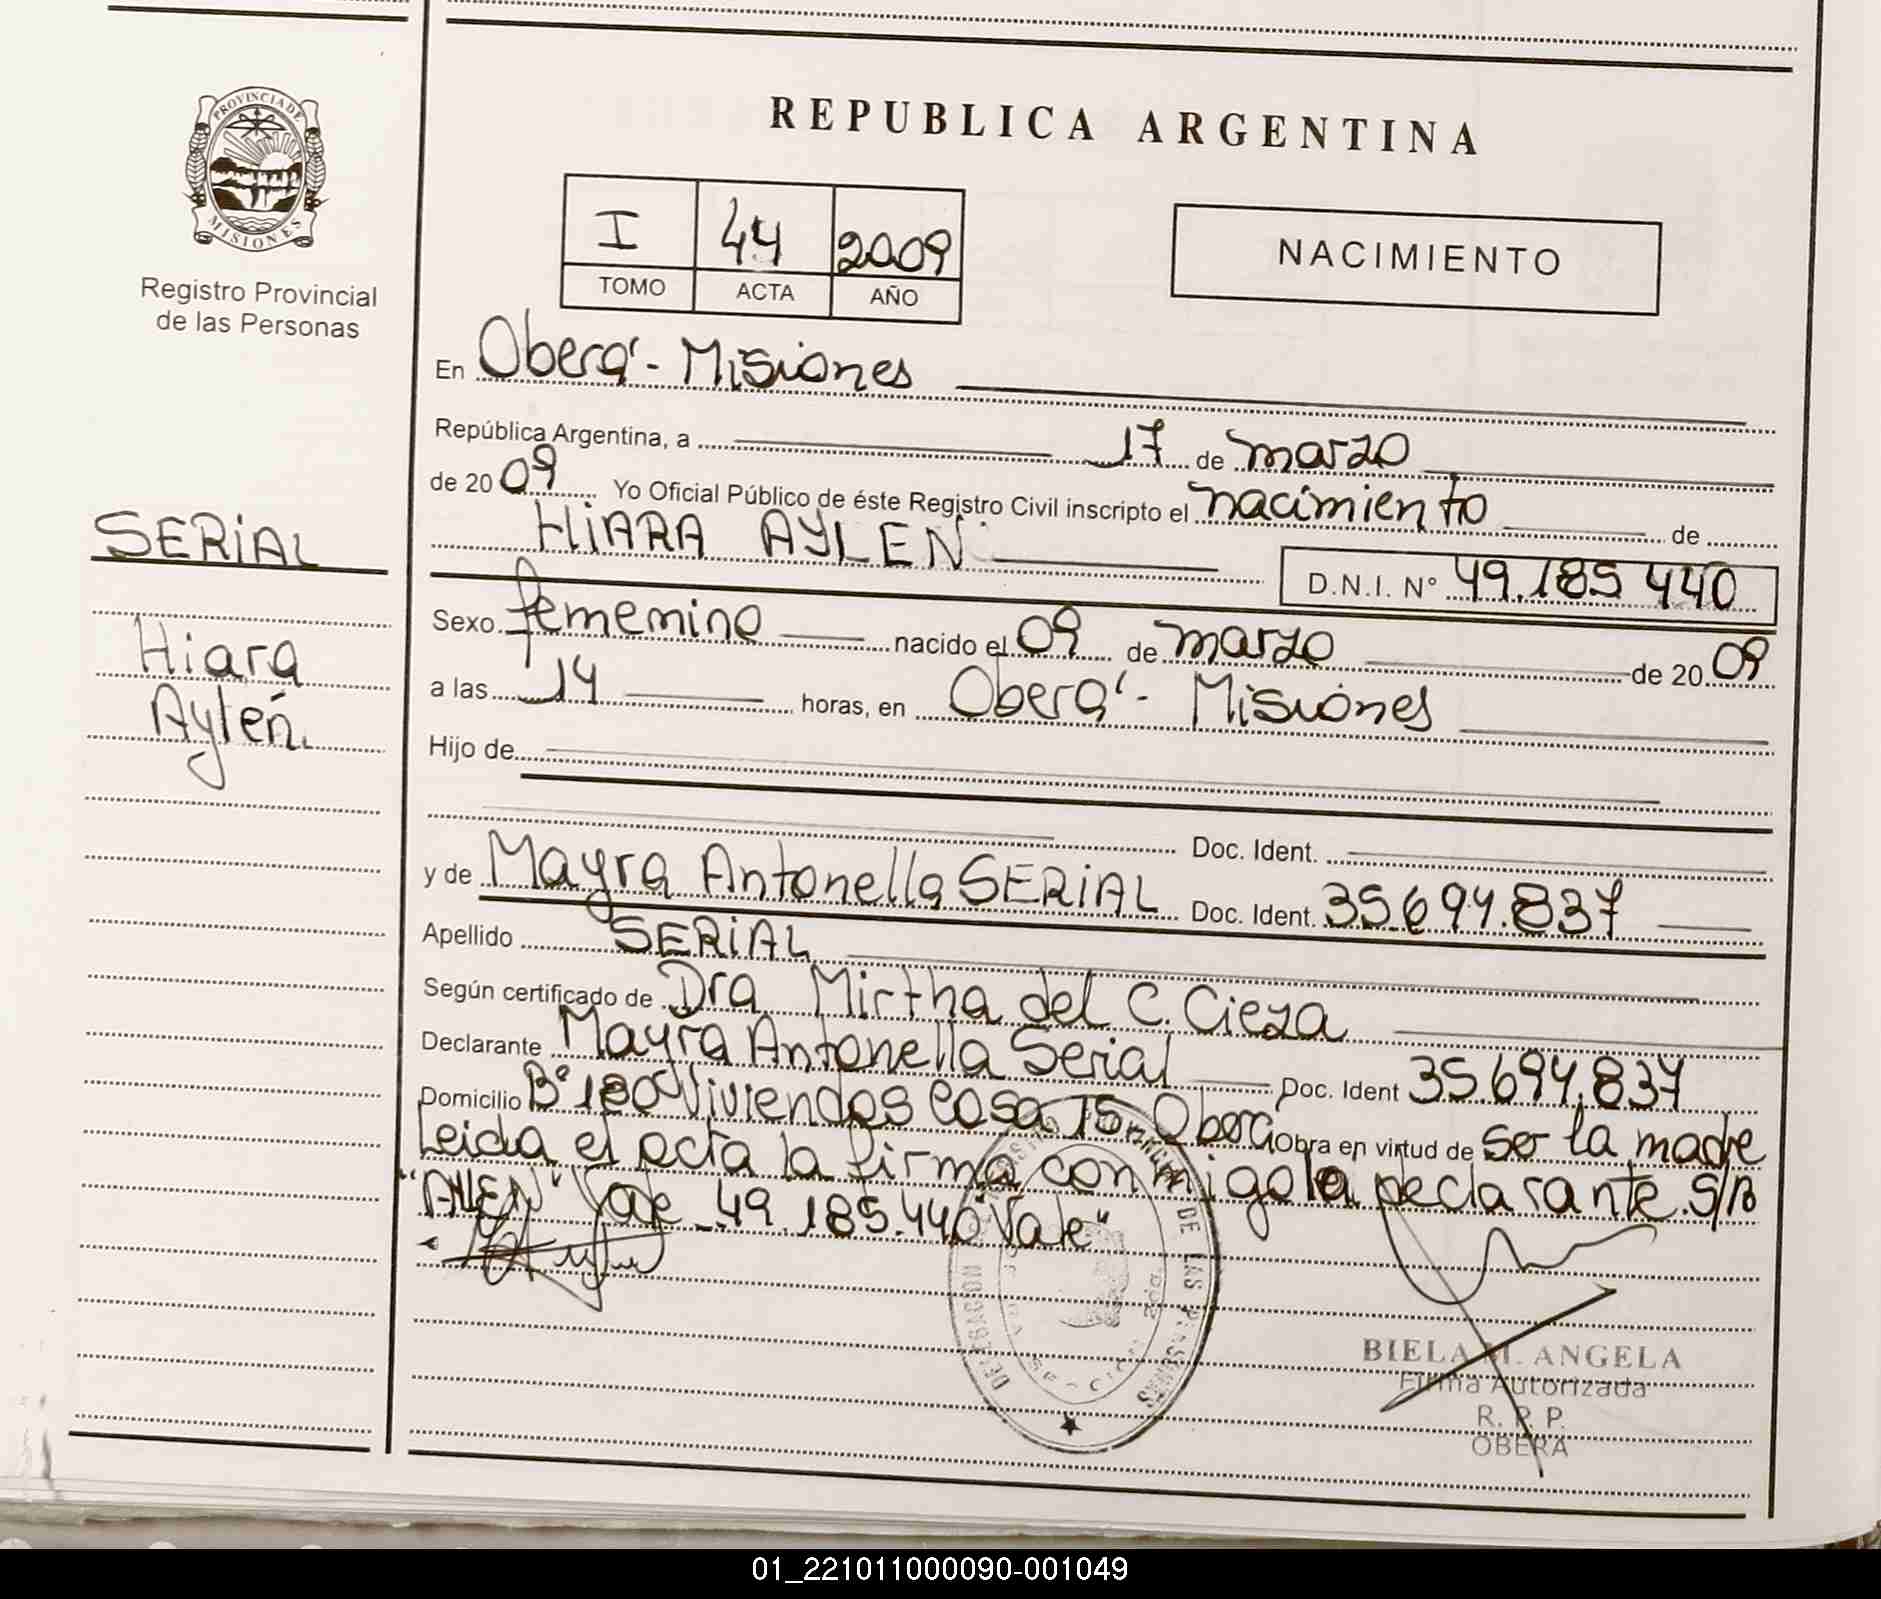 REPUBLICA ARGENTINA
PROVINCIA DE
MISIONES
Registro Provincial
de las Personas
I 44 2009
TOMO ACTA AÑO
NACIMIENTO
En Oberá - Misiones
República Argentina, a 17 de marzo
de 2009 Yo Oficial Público de éste Registro Civil inscripto el nacimiento de
HiARA AYLEN D.N.I. Nº 49.185 440
Sexo femenino nacido el 09 de marzo de 2009
a las 14 horas, en Oberá - Misiones
Hijo de
Doc. Ident.
y de Mayra Antonella SERiAL Doc. Ident. 35.694.837
Apellido SERiAL
Según certificado de Dra Mirtha del C. Cieza
Declarante Mayra Antonella Serial Doc. Ident 35.694.837
Domicilio Bº 180 Viviendas Casa 15 Oberá Obra en virtud de ser la madre
Leida el acta la firma conmigo la declarante. S/B
Vale 49.185.440 Vale"
SERiAL
Hiara
Aylén.
DELEGACION DE LAS PERSONAS
BIELA M. ANGELA
Firma Autorizada
R. P. P.
OBERA
01_221011000090-001049